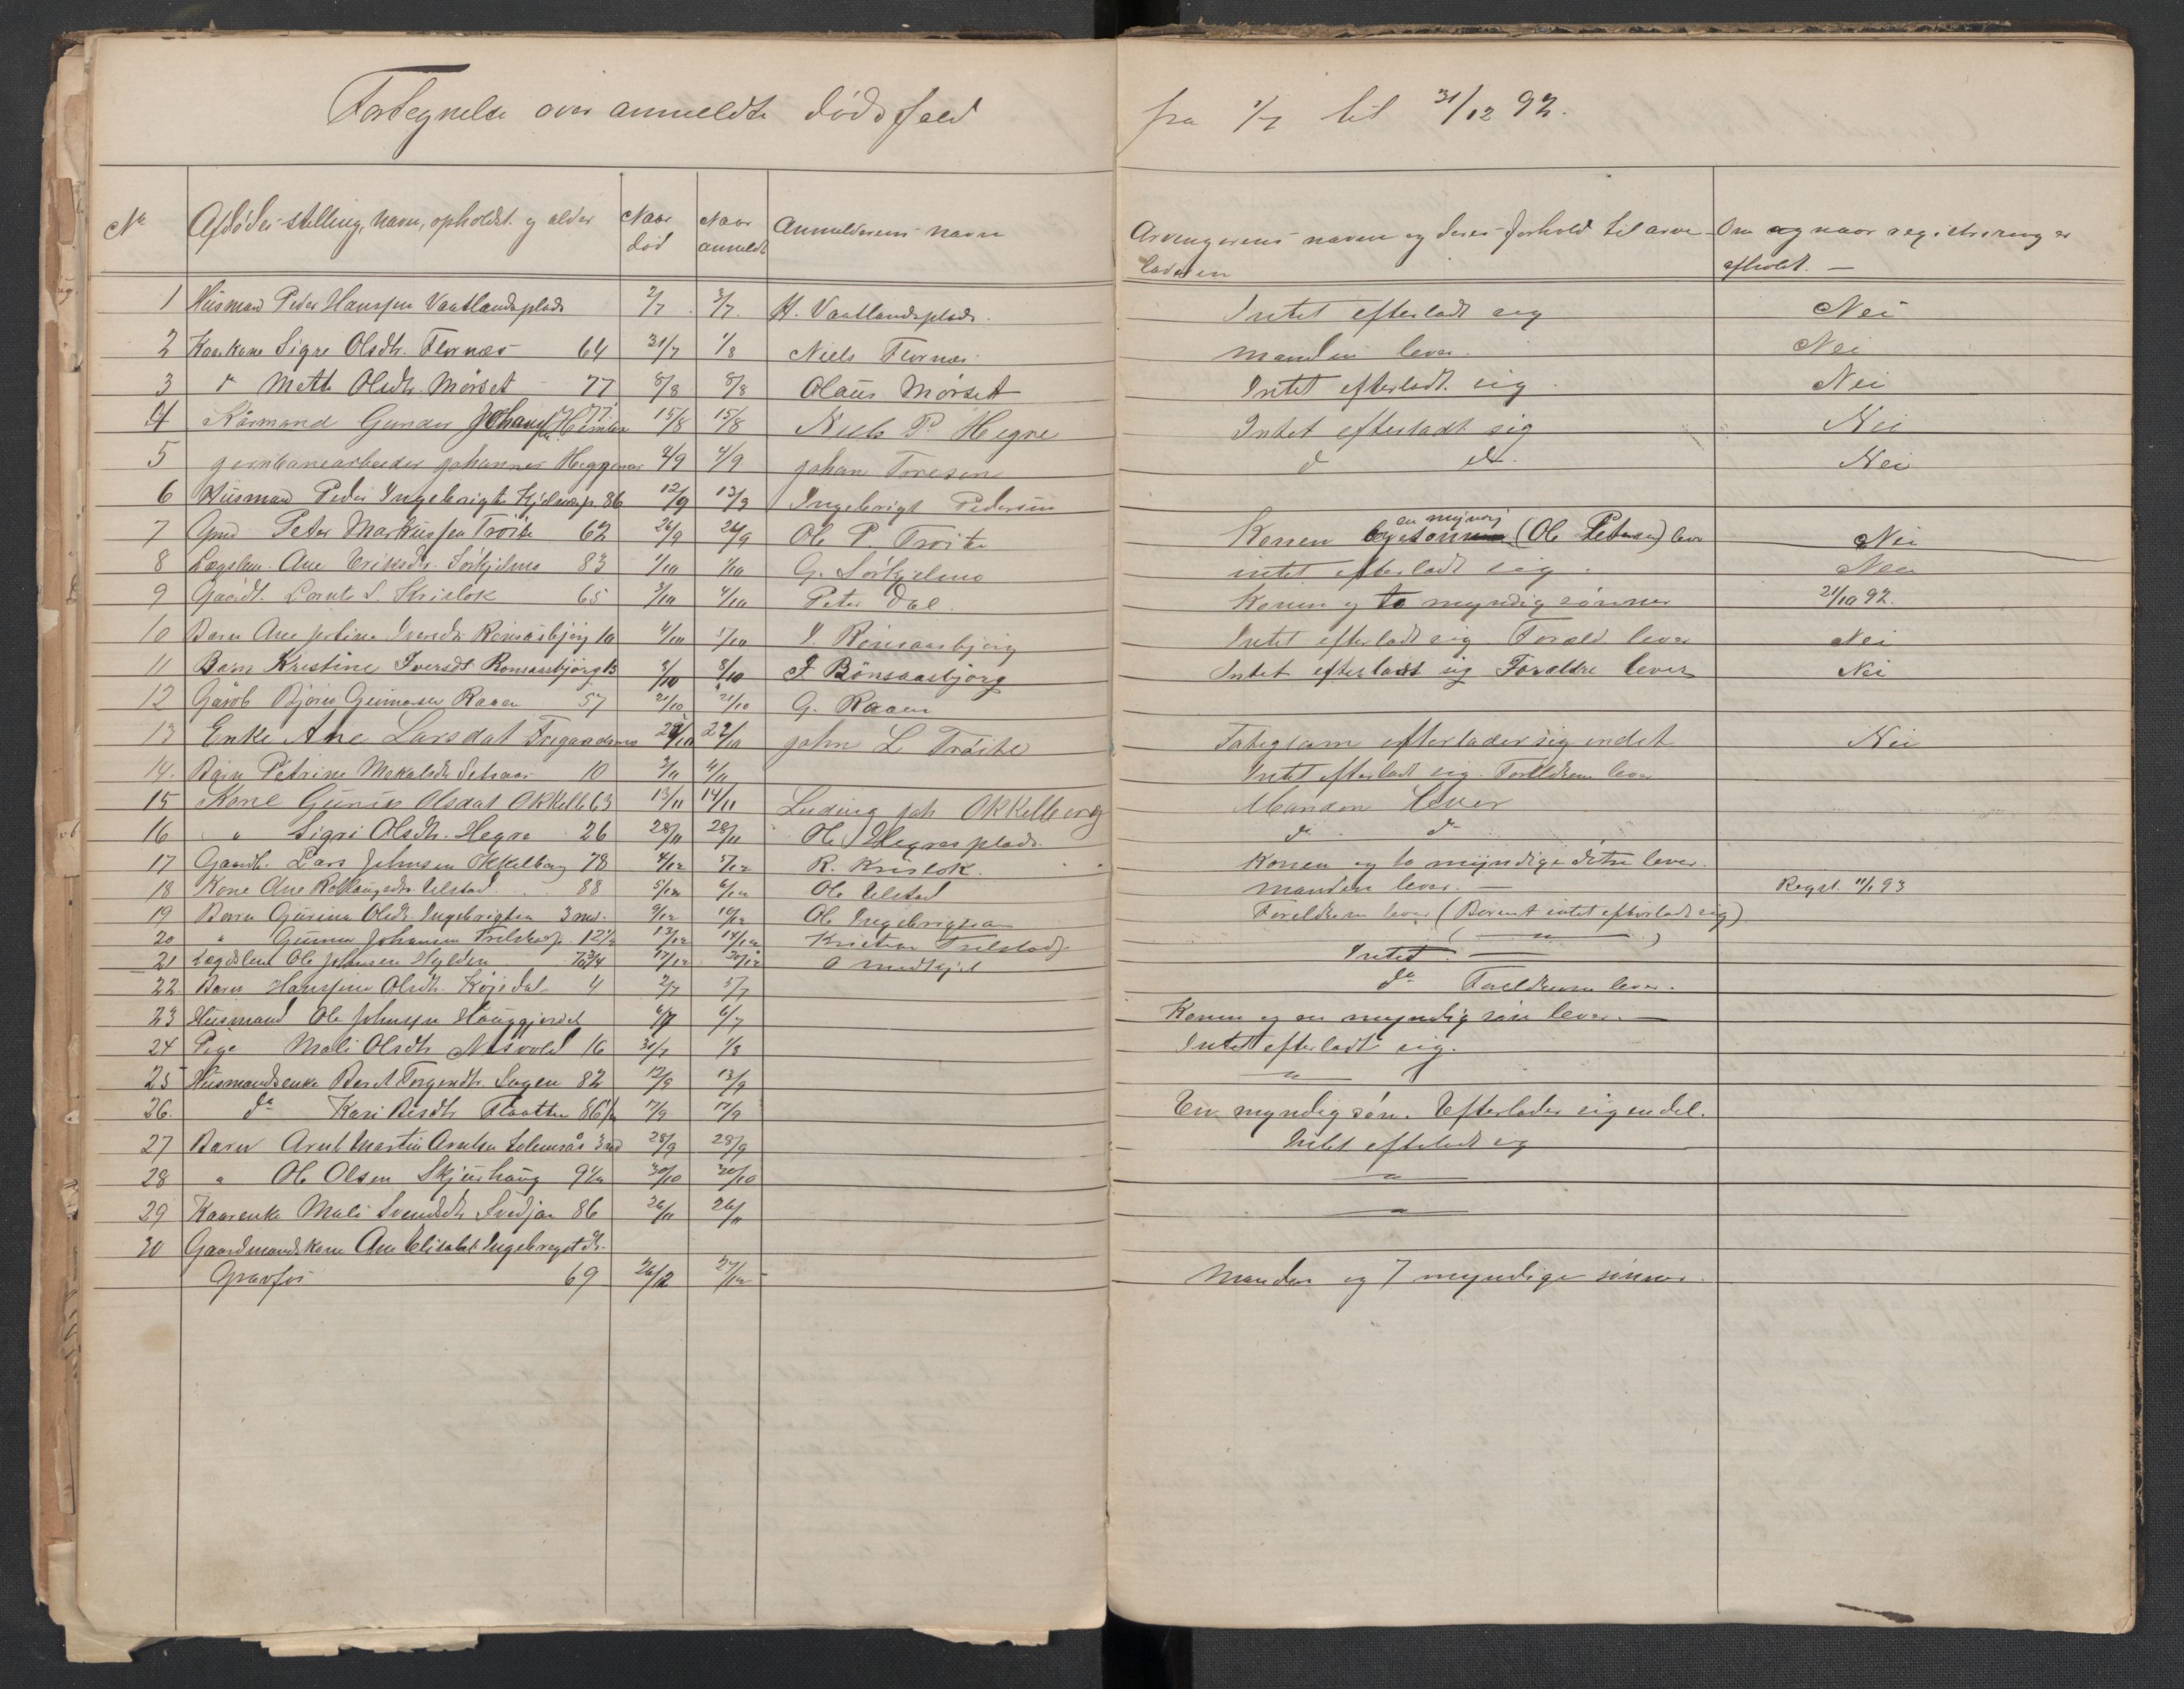 Fortegnelse over anmeldte dødsfald fra 1/7 til 31/12 92.
No Afdødes stilling, navn, opholdst. og alder Naar død Naar anmeldt Anmelderens navn Arvingernes navne og deres forhold til arveladeren Om og naar registrering er afholdt. —
1 Husmand Peder Hanssen Vaatlandsplads 2/7 3/7 H. Vaatlandsplads. Intet efterladt sig Nei
2 Kaarkone Sigre Olsdtr. Flornæs 64 31/7 1/8 Niels Flornæs Manden lever. Nei
3 Mette Olsdtr. Mørset 77 8/8 8/8 Olaus Mørset Intet efterladt sig. Nei
4 Kårmand Gunder 77 15/8 15/8 Niels P. Hegre Intet efterladt sig Nei
5 jernbanearbeider Johannes 4/9 4/9 Johan Toresen d do. Nei
6 Husmand Peder Ingebrigts. 86 12/9 13/9 Ingebrigt Pedersen
7 Gmd Peter Markussen Trøite 62 26/9 26/9 Ole P. Trøite Konen en myndig (Ole Petersen) lever Nei
8 Lægslem. Ane Eriksdtr. Sørkjelmo 83 1/10 1/10 G. Sørkjelmo intet efterladt sig. Nei
9 Gaardt. Lornts L. Krislok 65 3/10 4/10 Peter Dal. Konen og to myndig sønner 21/10 92.
10 Barn Ane Joline Iversdtr Rönsåsbjørg 10 4/10 5/10 I. Rönsaasbjørg Intet efterladt sig Foræld lever Nei
11 Barn Kristine Iversdt Ronsaasbjörg 13 8/10 8/10 I. Rönsaasbjörg Intet efterladt sig Forældre lever Nei
12 Gårdb Bjørn Gunnarsen Raaen 57 21/10 21/10 G. Raaen
13 Enke Ane Larsdat 22/10 John L Trøite Fategsam efterlader sig indet Nei
14. Barn Petrine 10 3/11 4/11 Intet efterladt sig. Forældrene lever
15 Kone Gunil Olsdat Okkelb 63 13/11 14/11 Ludvig Joh Okkelberg Manden lever
16 " Sigri Olsdtr. Hegre 26 28/11 28/11 Ole Hegresplads. do do
17 Gaardb. Lars Johnsen Okkelberg 78 4/12 5/12 R. Krislok. Konen og to myndige døtre lever.
18 Kone Ane Ulstad. 88 5/12 6/12 Ole Ulstad Manden lever. — Regst. 11/1 93
19 Barn Gurina Olsdtr. Ingebrigtsen 3 md. 9/12 10/12 Ole Ingebrigtsen Forældrene lever (Barnet intet efterladt sig).
20 " Gunnar Johansen 12 1/2 13/12 14/12 Kristian ( — " — )
21 Lægdslem Ole Johnsen 76 3/4 17/12 20/12 O Intet. —
22. Barn Hansine Olsdtr. Köjedal 4 2/7 5/7 do Forældrene lever.
23 Husmand Ole Johnsen Hauggjerdet 6/7 6/7 Konen og en myndig søn lever. —
24 Pige Mali Olsdtr Næsvold 16 31/7 1/8 Intet efterladt sig.
25 Husmandsenke Beret 82 12/9 13/9 — " —
26. do Kari 86 1/2 17/9 17/9 En myndig søn. Efterlader sig en del.
27 Barn Arnt Martin Arntsen 3 md 28/9 28/9 Intet efterladt sig
28 " Ole Olsen Skjurhaug 9 1/2 30/10 30/10 — " —
29 Kaarenke Mali Svendsdtr Svedjan 86 26/11 26/11 — " —
30 Gaardmandskone Ane Elisabet Ingebregtdtr.
Gravfos 69 26/12 27/12 Manden og 7 myndige sønner.